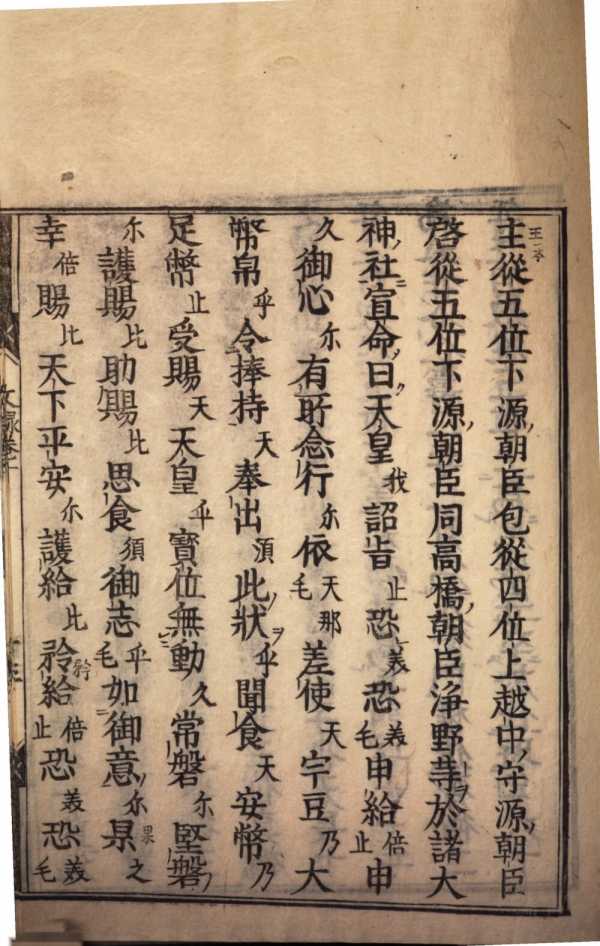 主從五位下源朝臣包從四位上越中守源朝臣
啓從五位下源朝臣同高橋朝臣淨野等於諸大
神社宣命曰天皇我詔旨止恐美恐美毛申給倍止申
久御心尓有所念行尓依天那毛差使天宇豆乃大
幣帛乎令捧持天奉出須此狀乎聞食天安幣乃
足幣止受賜天天皇乎寳位無動久常磐尓堅磐
尓護賜比助賜比思食須御志乎毛如御意尓杲之
幸倍賜比天下平安尓護給比矜給倍止恐美恐美毛